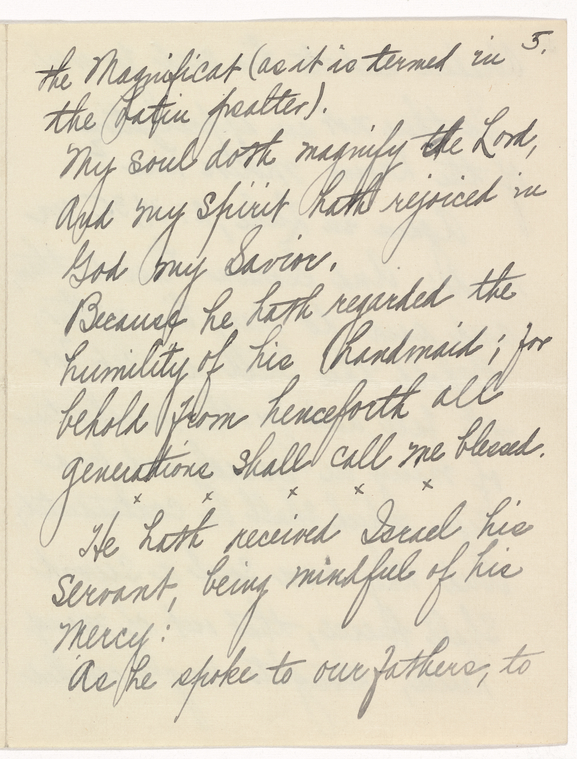 5.
the Magnificat (as it is termed in
the Latin psalter).
My soul doth magnify the Lord,
And my spirit hath rejoiced in
God my Savior.
Because he hath regarded the
humility of his handmaid; for
behold from henceforth all
generations shall call me blessed.
x x x x x
He hath received Israel his
servant, being mindful of his
mercy:
As he spoke to our fathers, to